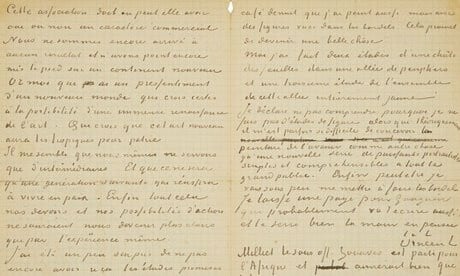 Cette association doit ou peut elle avoir
oui ou non un caractère commercial
Nous ne sommes encore arrivé à
aucun résultat et n'avons point encore
mis le pied sur un continent nouveau
Or moi que ai un pressentiment
d'un nouveau monde qui crois certes
à la possibilité d'une immense renaissance
de l'art. Qui crois que cet art nouveau
aura les tropiques pour patrie.
Il me semble que nous mêmes ne servons
que d'intermédiaires. Et que ce ne sera
qu'une génération suivante qui réussira
à vivre en paix. Enfin tout cela
nos devoirs et nos possibilités d'action
ne sauraient nous devenir plus clairs
que par l'expérience même.
J'ai été un peu surpris de ne pas
encore avoir reçu les études promises
café de nuit que j'ai peint
des figures vues dans les bordels. Cela promet
de devenir une belle chose
Moi j'ai fait deux études d'une chute
des feuilles dans une allée de peupliers
et une troisième étude de l'ensemble
de cette allée entièrement jaune.
Je déclare ne pas comprendre pourquoi je ne
fais pas d'études de figure alors que théoriquement
il m'est parfois si difficile de concevoir la
peinture de l'avenir comme autre chose
qu'une nouvelle série de puissants portraitistes
simples et compréhensibles à tout le
grand public. Enfin peutetre je
vais sous peu me mettre à faire les bordels
je laisse une page pour Gauguin
qui probablement va t'écrire aussi
et te serre bien la main en pensée
t. à t.
Vincent
Milliet le sous off. Zouaves est parti pour
l'Afrique et aimerait bien que